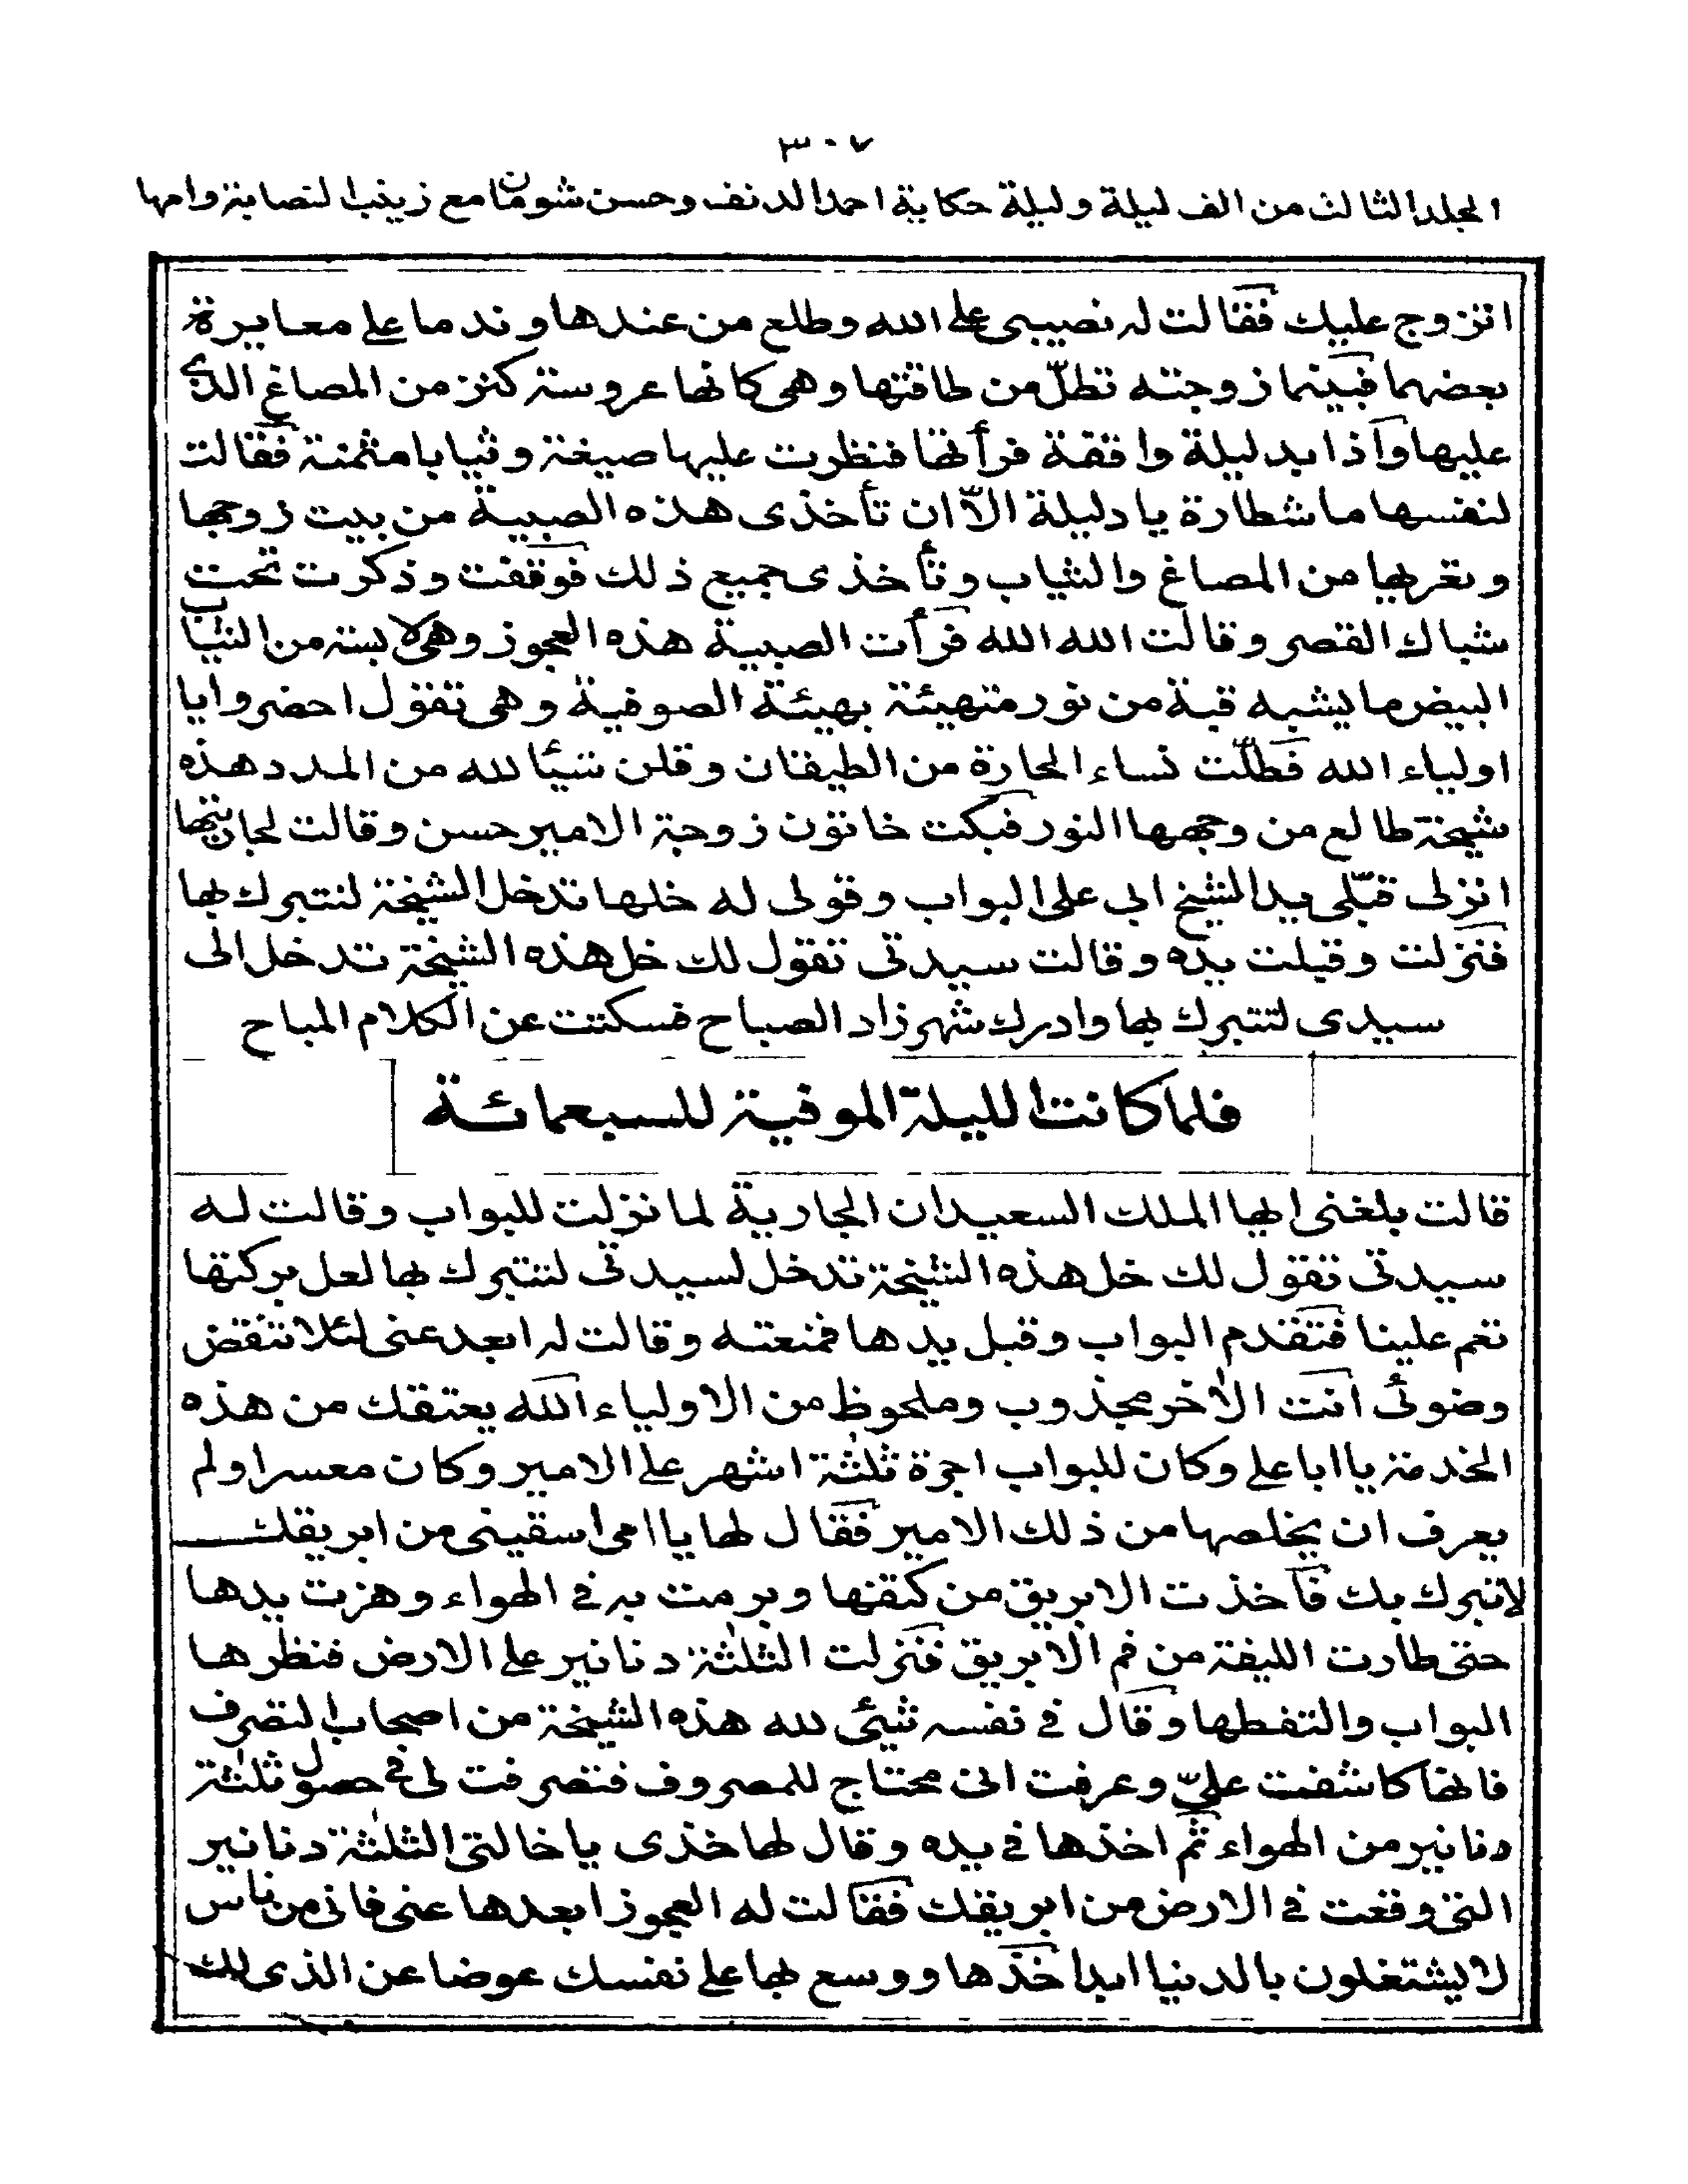 ٣٠٧
المجلد الثالث من الف ليلة وليلة حكاية احمد الدنف وحسن شومان مع زينب النصابة وامها
اتزوج عليك فقالت له نصيبى على الله وطلع من عندها وندما على معايرة
بعضهما فبينما زوجته تطلّ من طاقتها وهى كانها عروسة كنز من المصاغ الذى
عليها واذا بدليلة واقفة فرأتها فنظرت عليها صيغة وثيابا مثمنة فقالت
لنفسها ما شطارة يا دليلة الاّ ان تأخذى هذه الصبية من بيت زوجها
وتعريها من المصاغ والثياب وتأخذى جميع ذلك فوقفت وذكرت تحت
شباك القصر وقالت الله الله فرأت الصبية هذه العجوز وهى لابسة من الثياب
البيض ما يشبه قبة من نور متهيئة بهيئة الصوفية وهى تقول احضروا يا
اولياء الله فطلّت نساء الحارة من الطيقان وقلن شيئا لله من المدد هذه
شيخة طالع من وجهها النور فبكت خاتون زوجة الامير حسن وقالت لجاريتها
انزلى قبّلى يد الشيخ ابى على البواب وقولى له خلها تدخل الشيخة لنتبرك بها
فنزلت وقبلت يده وقالت سيدتى تقول لك خل هذه الشيخة تدخل الى
سيدى لتتبرك بها وادرك شهرزاد الصباح فسكتت عن الكلام المباح
فلما كانت الليلة الموفية للسبعمائة
قالت بلغنى ايها الملك السعيد ان الجارية لما نزلت للبواب وقالت له
سيدتى تقول لك خل هذه الشيخة تدخل لسيدتى لنتبرك بها لعل بركتها
تعم علينا فتقدم البواب وقبل يدها فمنعته وقالت له ابعد عنى لئلا تنقض
وضوئى انت الاخر مجذوب وملحوظ من الاولياء الله يعتقك من هذه
الخدمة يا ابا على وكان للبواب اجرة ثلثة اشهر على الامير وكان معسرا ولم
يعرف ان يخلصها من ذلك الامير فقال لها يا امى اسقينى من ابريقك
لاتبرك بك فأخذت الابريق من كتفها وبرمت به فى الهواء وهزت يدها
حتى طارت الليفة من فم الابريق فنزلت الثلثة دنانير على الارض فنظرها
البواب والتقطها وقال فى نفسه شيئى لله هذه الشيخة من اصحاب التصرف
فانها كاشفت علىّ وعرفت انى محتاج للمصروف فتصرفت لى فى حصول ثلثة
دنانير من الهواء ثم اخذها فى يده وقال لها خذى يا خالتى الثلثة دنانير
التى وقعت فى الارض من ابريقك فقالت له العجوز ابعدها عنى فانى من ناس
لا يشتغلون بالدنيا ابدا خذها ووسع بها على نفسك عوضا عن الذى لك